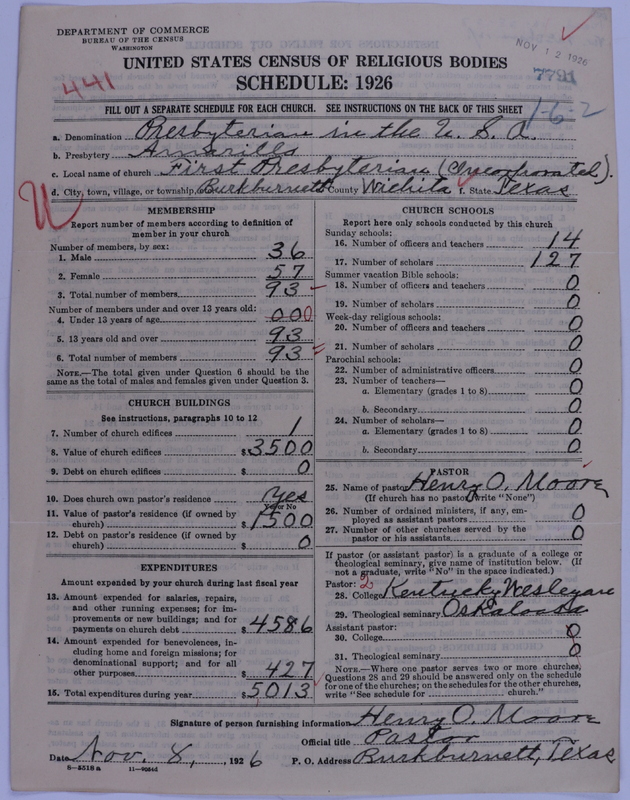 DEPARTMENT OF COMMERCE
BUREAU OF THE CENSUS
WASHINGTON
NOV 12 1926
7791
441
UNITED STATES CENSUS OF RELIGIOUS BODIES
SCHEDULE: 1926
FILL OUT A SEPARATE SCHEDULE FOR EACH CHURCH. SEE INSTRUCTIONS ON THE BACK OF THIS SHEET
1-6-2
a. Denomination Presbyterian in the U. S. A.
b. Presbytery Amarillo
c. Local name of church First Presbyterian (Incorporated).
d. City, town, village, or township, Burkburnett County Wichita f. State Texas
MEMBERSHIP
Report number of members according to definition of
member in your church
Number of members, by sex:
1. Male 36
2. Female 57
3. Total number of members 93
Number of members under and over 13 years old:
4. Under 13 years of age 000
5. 13 years old and over 93
6. Total number of members 93
NOTE.—The total given under Question 6 should be the
same as the total of males and females given under Question 3.
CHURCH BUILDINGS
See instructions, paragraphs 10 to 12
7. Number of church edifices 1
8. Value of church edifices $3500
9. Debt on church edifices $ 0
10. Does church own pastor's residence Yes
Yes or No
11. Value of pastor's residence (if owned by
church) $1500
12. Debt on pastor's residence (if owned by
church) $ 0
EXPENDITURES
Amount expended by your church during last fiscal year
13. Amount expended for salaries, repairs,
and other running expenses; for im-
provements or new buildings; and for
payments on church debt $4586
14. Amount expended for benevolences, in-
cluding home and foreign missions; for
denominational support; and for all
other purposes $ 427
15. Total expenditures during year $5013
CHURCH SCHOOLS
Report here only schools conducted by this church
Sunday schools:
16. Number of officers and teachers 14
17. Number of scholars 127
Summer vacation Bible schools:
18. Number of officers and teachers 0
19. Number of scholars 0
Week-day religious schools:
20. Number of officers and teachers 0
21. Number of scholars 0
Parochial schools:
22. Number of administrative officers 0
23. Number of teachers—
a. Elementary (grades 1 to 8) 0
b. Secondary 0
24. Number of scholars—
a. Elementary (grades 1 to 8) 0
b. Secondary 0
PASTOR
25. Name of pastor Henry O. Moore
(If church has no pastor, write "None")
26. Number of ordained ministers, if any, em-
ployed as assistant pastors 0
27. Number of other churches served by the
pastor or his assistants 0
If pastor (or assistant pastor) is a graduate of a college or
theological seminary, give name of institution below. (If
not a graduate, write "No" in the space indicated.)
Pastor: 2
28. College Kentucky Wesleyan
29. Theological seminary Oskaloosa
Assistant pastor:
30. College 0
31. Theological seminary 0
NOTE.—Where one pastor serves two or more churches,
Questions 28 and 29 should be answered only on the schedule
for one of the churches; on the schedules for the other churches,
write "See schedule for church."
Signature of person furnishing information Henry O. Moore
Official title Pastor
Date Nov. 8, 1926 P. O. Address Burkburnett, Texas
8—5518a 11—9064d